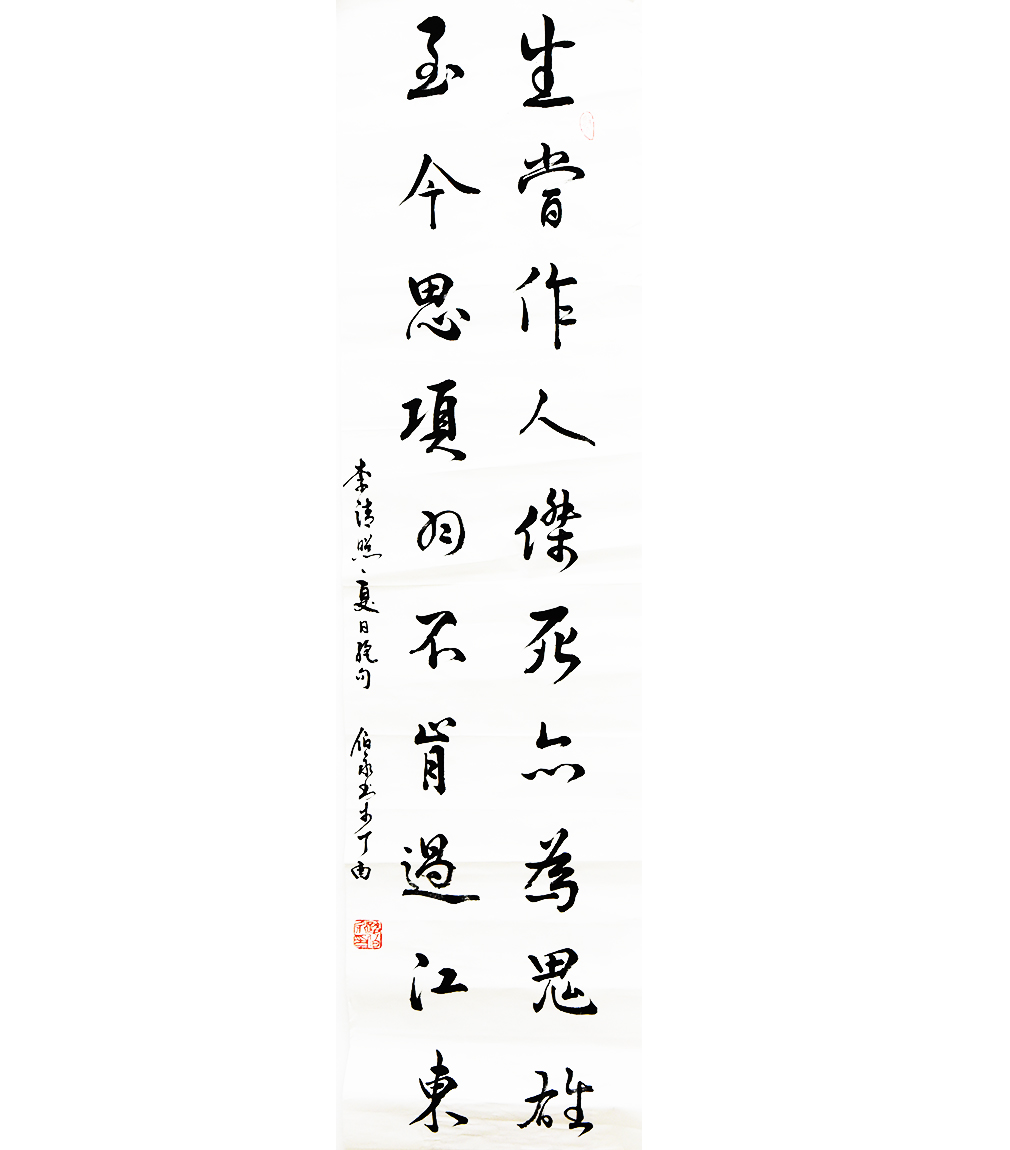 生當作人傑死亦為鬼雄
至今思項羽不肯過江東
李清照夏日絕句 伯永書於丁酉